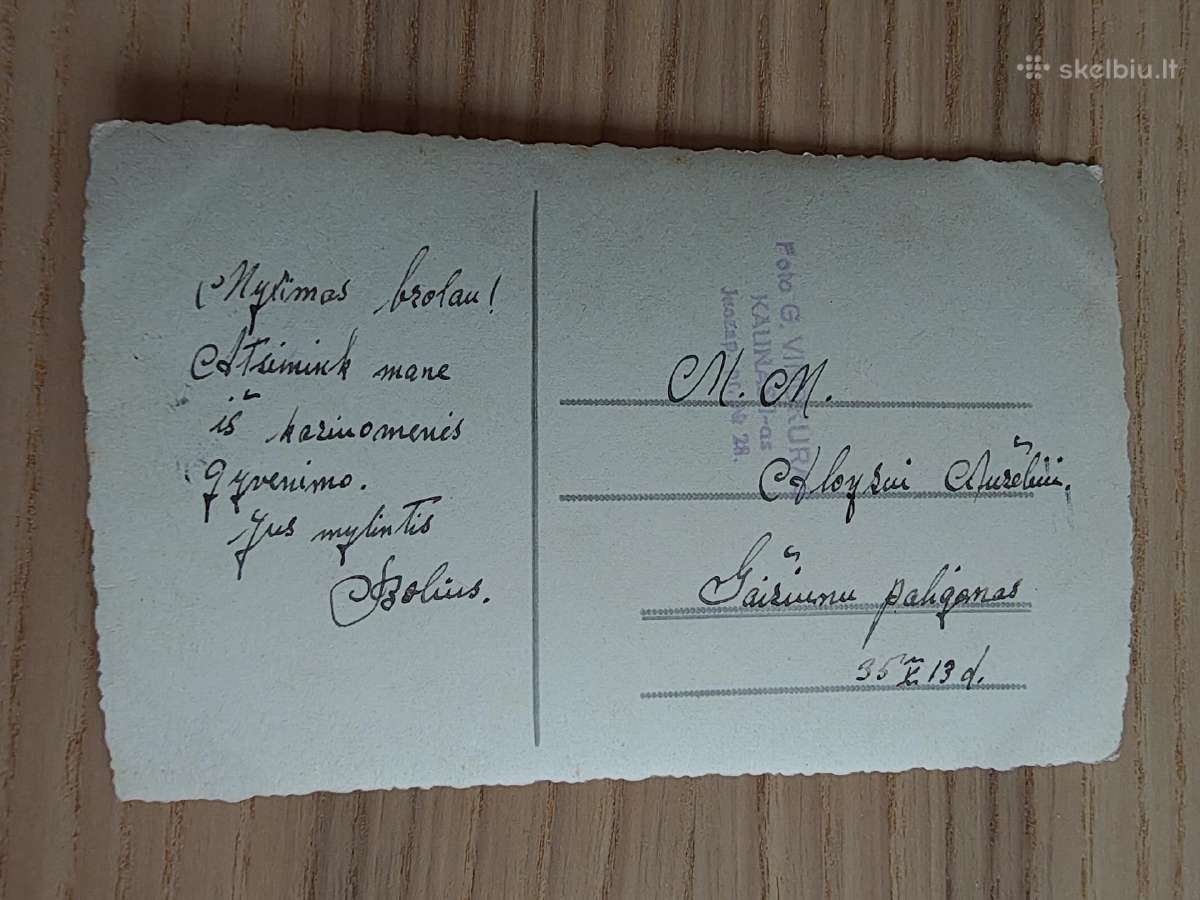 skelbiu.lt
Mylimas brolau!
Atsimink mane
iš kariuomenės
gyvenimo.
Jus mylintis
Bolius.
Foto G.
KAUNAS
28.
M. M.
Aloyzui
Gaižiunu poligonas
35 X 13 d.